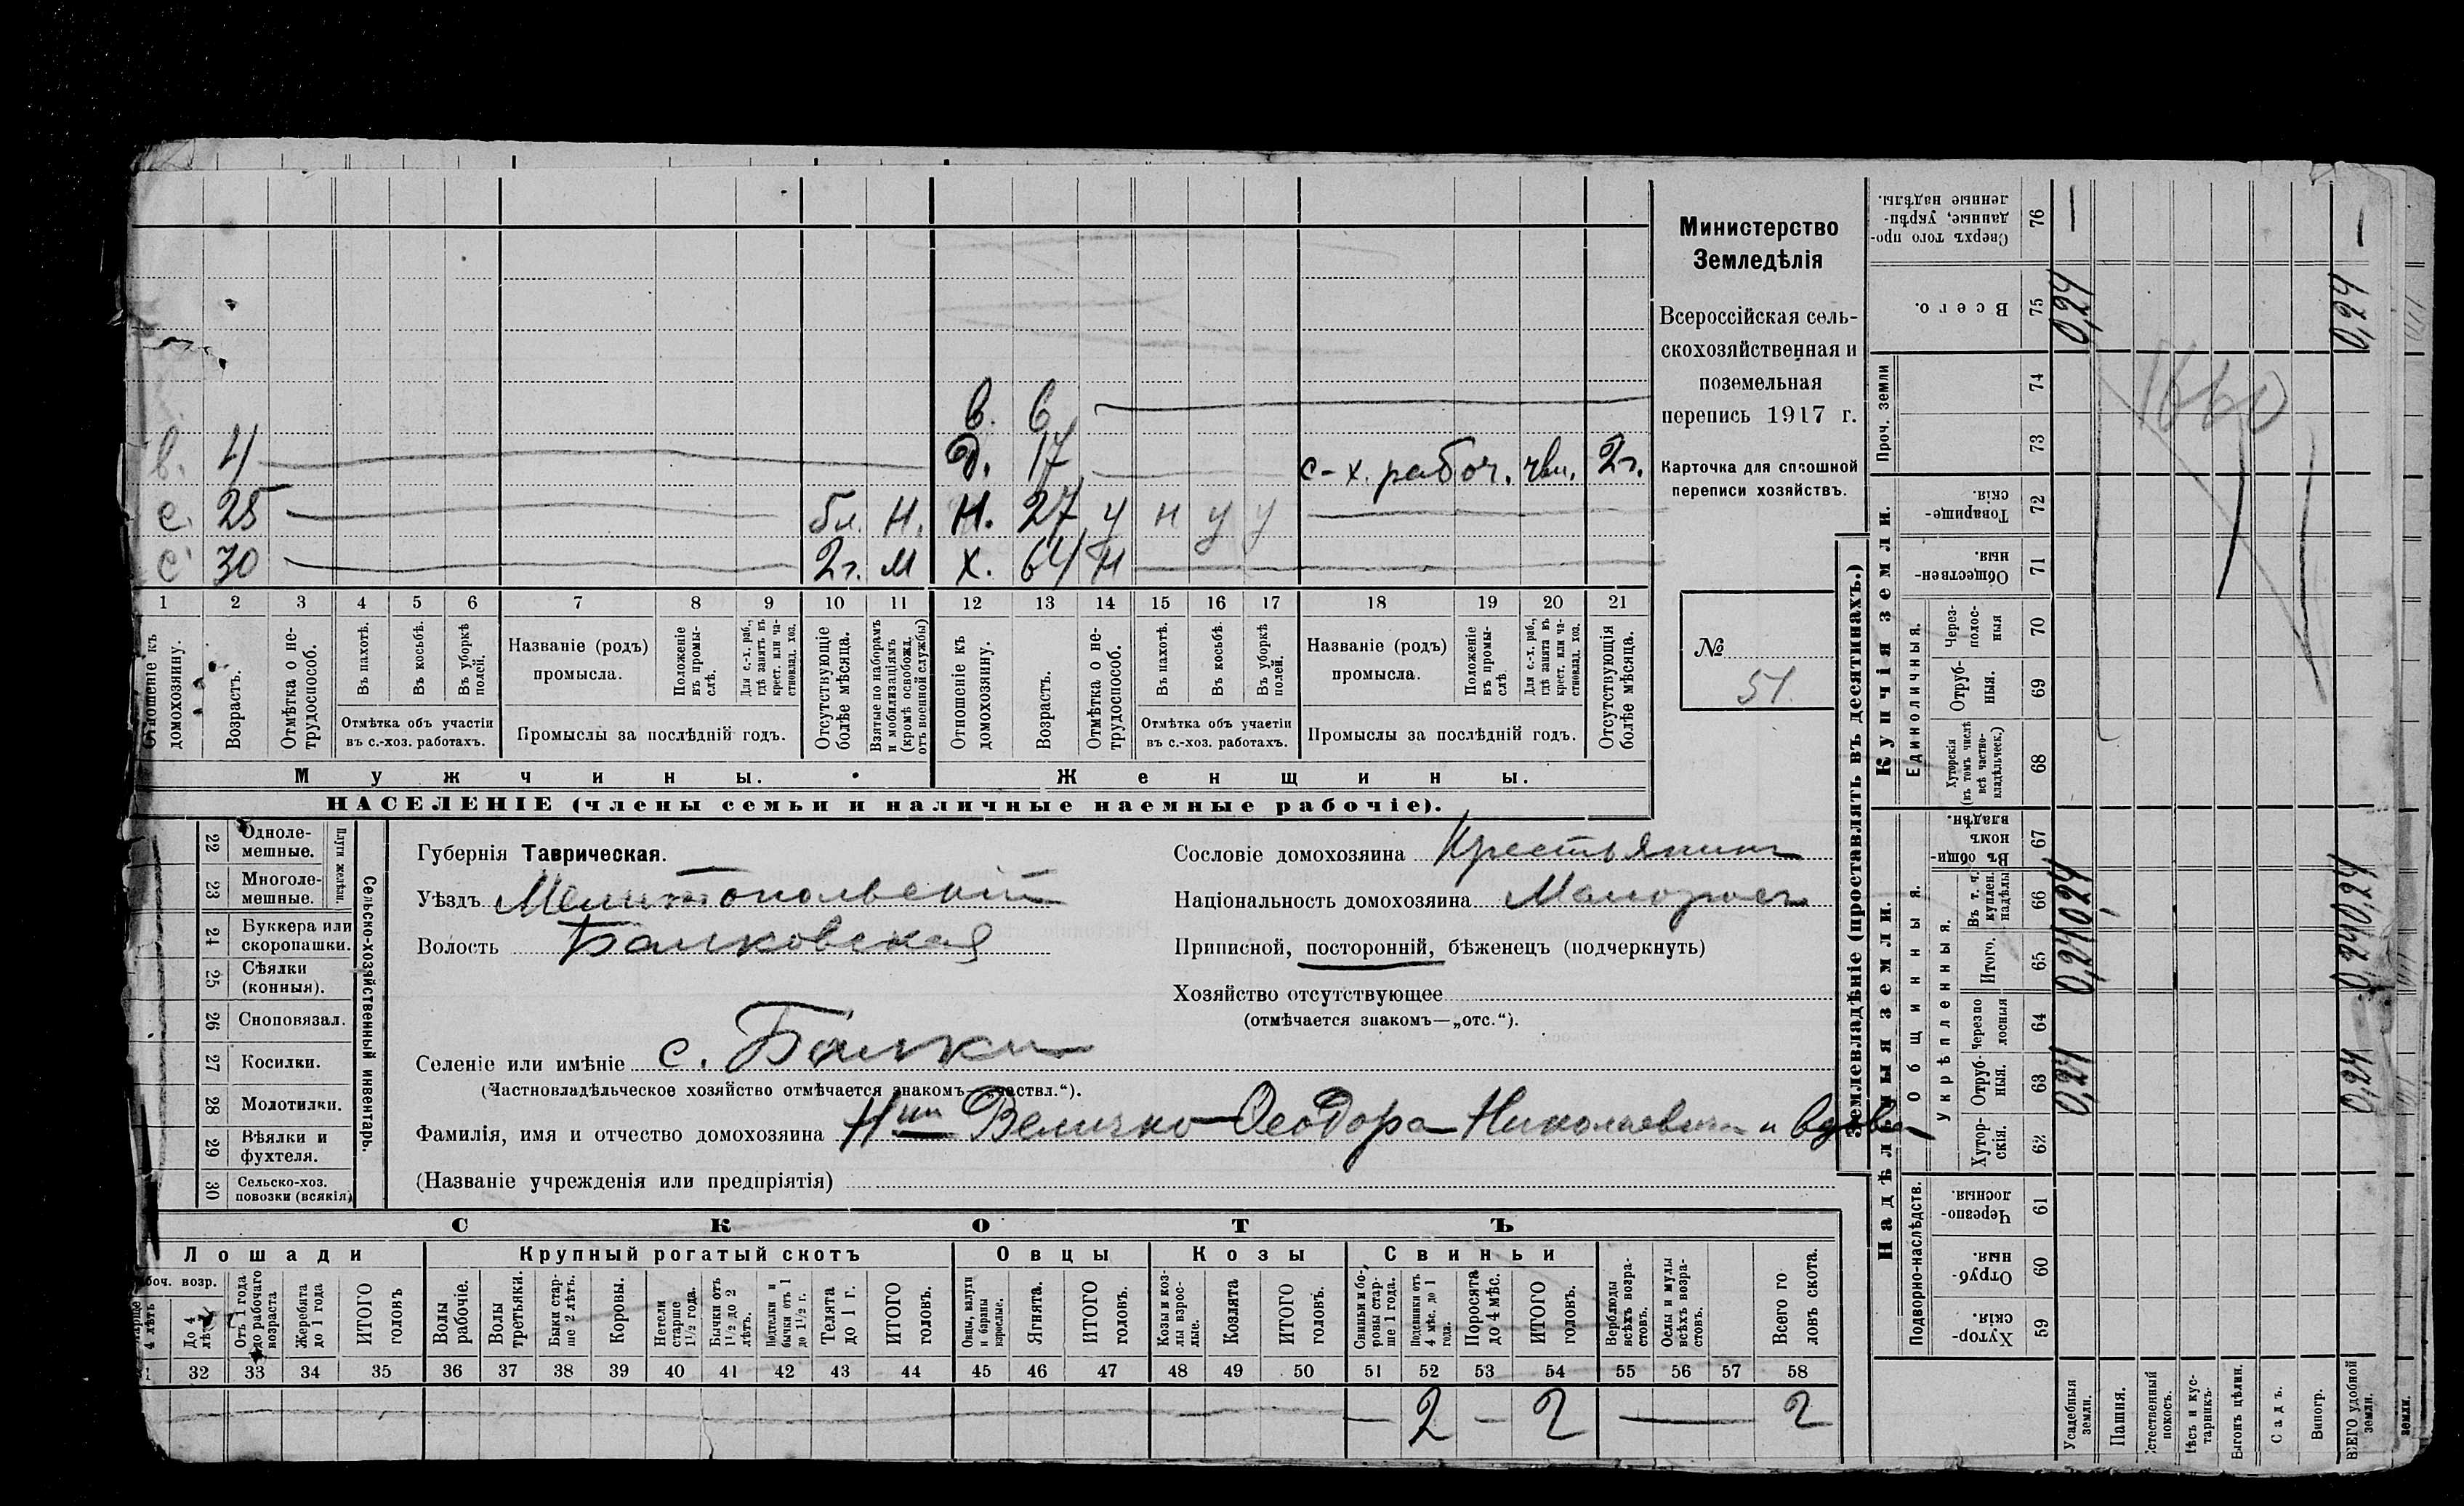 Министерство
Земледѣлія
Всероссійская сель-
скохозяйственная и
поземельная
перепись 1917 г.
Карточка для сплошной
переписи хозяйствъ.
№
51.
в. 6
в. 4 д. 17 с-х. рабоч. 2г.
с. 25 Н. Н. 27 у н у у
с. 30 2г. М х. 64 Н
1 2 3 4 5 6 7 8 9 10 11 12 13 14 15 16 17 18 19 20 21
Отношеніе къ домохозяину.
Возрастъ.
Отмѣтка о не-трудоспособ.
Въ пахотѣ.
Въ косьбѣ.
Въ уборкѣ полей.
Отмѣтка объ участіи въ с.-хоз. работахъ.
Названіе (родъ) промысла.
Положеніе въ промы-слѣ.
Для с.-х. раб., гдѣ занятъ въ крест. или ча-стновлад. хоз.
Промыслы за послѣдній годъ.
Отсутствующіе болѣе мѣсяца.
Взятые по наборамъ и мобилизаціямъ (кромѣ освобожд. отъ военной службы)
Отношеніе къ домохозяину.
Возрастъ.
Отмѣтка о не-трудоспособ.
Въ пахотѣ.
Въ косьбѣ.
Въ уборкѣ полей.
Отмѣтка объ участіи въ с.-хоз. работахъ.
Названіе (родъ) промысла.
Положеніе въ промы-слѣ.
Для с.-х. раб., гдѣ занята въ крест. или ча-стновлад. хоз.
Промыслы за послѣдній годъ.
Отсутствующія болѣе мѣсяца.
Мужчины. Женщины.
НАСЕЛЕНІЕ (члены семьи и наличные наемные рабочіе).
22 Одноле-мешные.
23 Многоле-мешные.
Плуги желѣзн.
24 Буккера или скоропашки.
25 Сѣялки (конныя).
26 Сноповязал.
27 Косилки.
28 Молотилки.
29 Вѣялки и фухтеля.
30 Сельско-хоз. повозки (всякія)
Сельско-хозяйственный инвентарь.
Губернія Таврическая.
Уѣздъ Мелитопольскій
Волость Балковская
Селеніе или имѣніе с. Балки
(Частновладѣльческое хозяйство отмѣчается знакомъ—„частвл.“).
Фамилія, имя и отчество домохозяина Н-ки Величко Ѳеодора Николаевича и вдова
(Названіе учрежденія или предпріятія)
Сословіе домохозяина Крестьянинъ
Національность домохозяина Малороссъ
Приписной, посторонній, бѣженецъ (подчеркнуть)
Хозяйство отсутствующее
(отмѣчается знакомъ—„отс.“).
СКОТЪ
Лошади Крупный рогатый скотъ Овцы Козы Свиньи
боч. возр.
старше 4 лѣтъ
До 4 лѣтъ
Отъ 1 года до рабочаго возраста
Жеребята до 1 года
ИТОГО головъ
Волы рабочіе.
Волы третьяки.
Быки стар-ше 2 лѣтъ.
Коровы.
Нетели старше 1½ года.
Бычки отъ 1½ до 2 лѣтъ.
Нетели и бычки отъ 1 до 1½ г.
Телята до 1 г.
ИТОГО головъ.
Овцы, валухи и бараны взрослые.
Ягнята.
ИТОГО головъ.
Козы и коз-лы взрос-лые.
Козлята
ИТОГО головъ.
Свиньи и бо-ровы стар-ше 1 года.
Подсвинки отъ 4 мѣс. до 1 года.
Поросята до 4 мѣс.
ИТОГО головъ.
Верблюды всѣхъ возра-стовъ.
Ослы и мулы всѣхъ возра-стовъ.
Всего го ловъ скота.
32 33 34 35 36 37 38 39 40 41 42 43 44 45 46 47 48 49 50 51 52 53 54 55 56 57 58
— 2 — 2 — 2
Землевладѣніе (проставлять въ десятинахъ.)
Купчія земли.
Надѣльныя земли.
Сверхъ того про-данные, укрѣп-ленные надѣлы. 76 — —
Всего. 75 0,24 0,24
Проч. земли 74 73
Товарище-скія. 72
Обществен-ныя. 71
Единоличныя.
Через-полос-ныя 70
Отруб-ныя. 69
Хуторскія (въ томъ числѣ всѣ частно-владѣльческ.) 68
Общинныя.
Въ общин-номъ владѣн. 67
Укрѣпленныя.
Въ т. ч. куплен. надѣлы 66 0,24 0,24
Итого. 65 0,24 0,24
Черезпо лосныя 64
Отруб ныя. 63 0,24 0,24
Хутор-скія. 62
Подворно-наслѣдств.
Черезпо-лосныя. 61
Отруб-ныя. 60
Хутор-скія. 59
Усадебная земли.
Пашня.
стественный покосъ.
ѣсъ и кус-тарникъ.
ыгонъ цѣлин.
Садъ.
Виногр.
ВСЕГО удобной земли.
земли.
1660